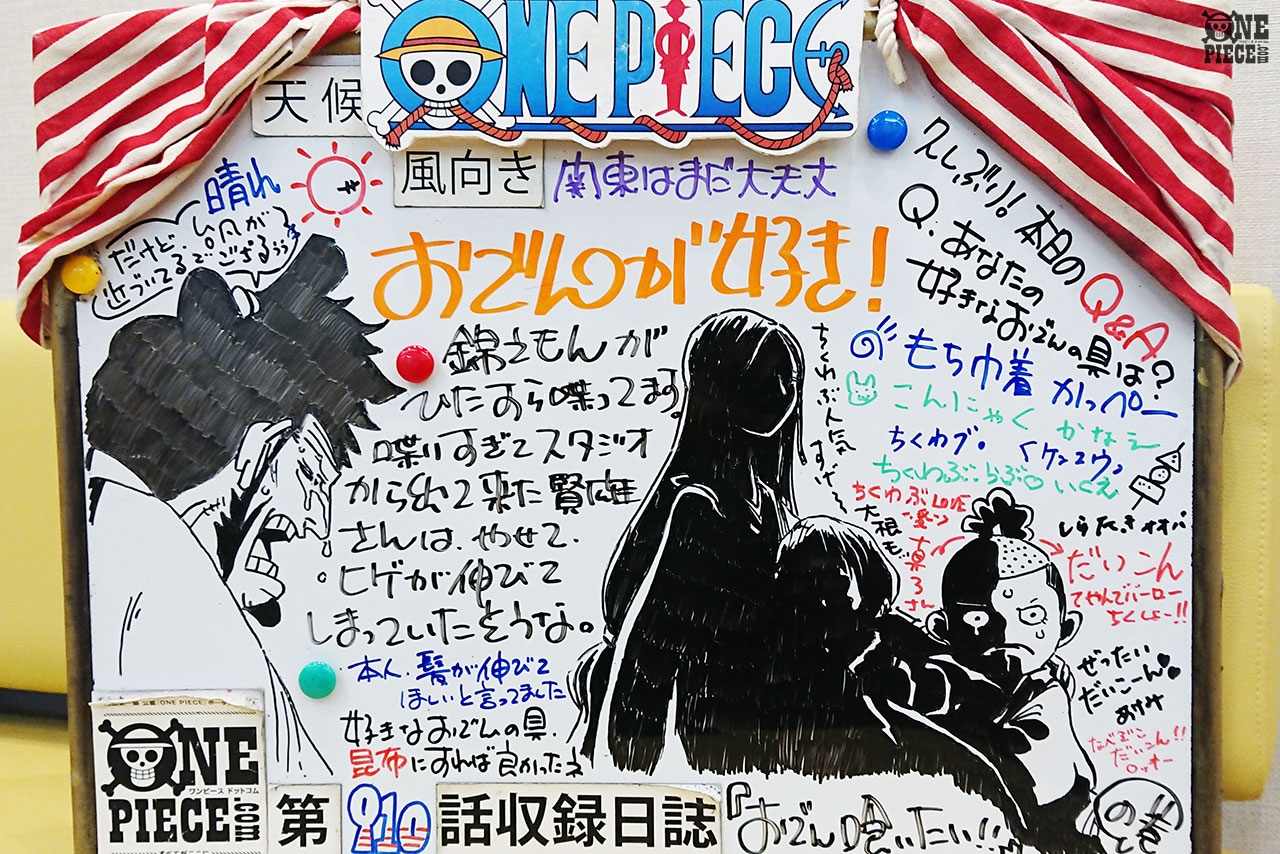 ONE PIECE
ONE
PIECE.com
天候
晴れ
だけど、台風が
近づいてるでござるぅぅ
風向き
関東はまだ大丈夫
おでんが好き!
錦えもんが
ひたすら喋ってます。
喋りすぎてスタジオ
から出て来た賢雄
さんは、やせて、
ヒゲが伸びて
しまっていたそうな。
本人、髪が伸びて
ほしいと言ってました
好きなおでんの具、
昆布にすれば良かったネ
久しぶり!本日のQ&A
Q:あなたの
好きなおでんの具は?
もち巾着 かっぺー
こんにゃく かなえ
ちくわブ。
ちくわぶらぶ いくえ
ちくわぶLOVE
しらたき ナオハ
ちくわぶ人気
すげ〜
大根も
だいこん
てやんでバーロー
ちくしょー!!
ぜったい
だいこーん
あけみ
なべぶこ
だいこん!!
ONE
PIECE.com
ワンピース ドットコム
第910話収録日誌
『おでん喰いたい!!』
の巻